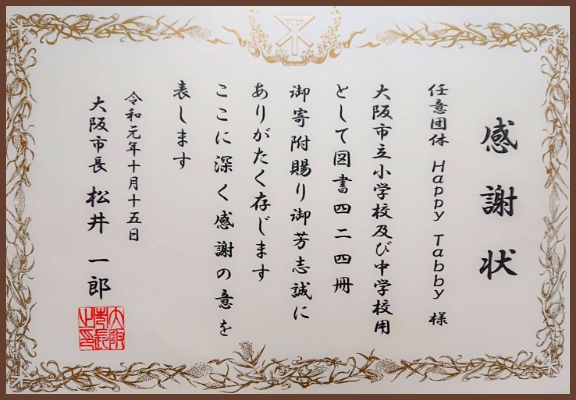 感謝状
任意団体 Happy Tabby 様
大阪市立小学校及び中学校用
として図書四二四冊
御寄附賜り御芳志誠に
ありがたく存じます
ここに深く感謝の意を
表します
令和元年十月十五日
大阪市長 松井一郎
大阪市長之印